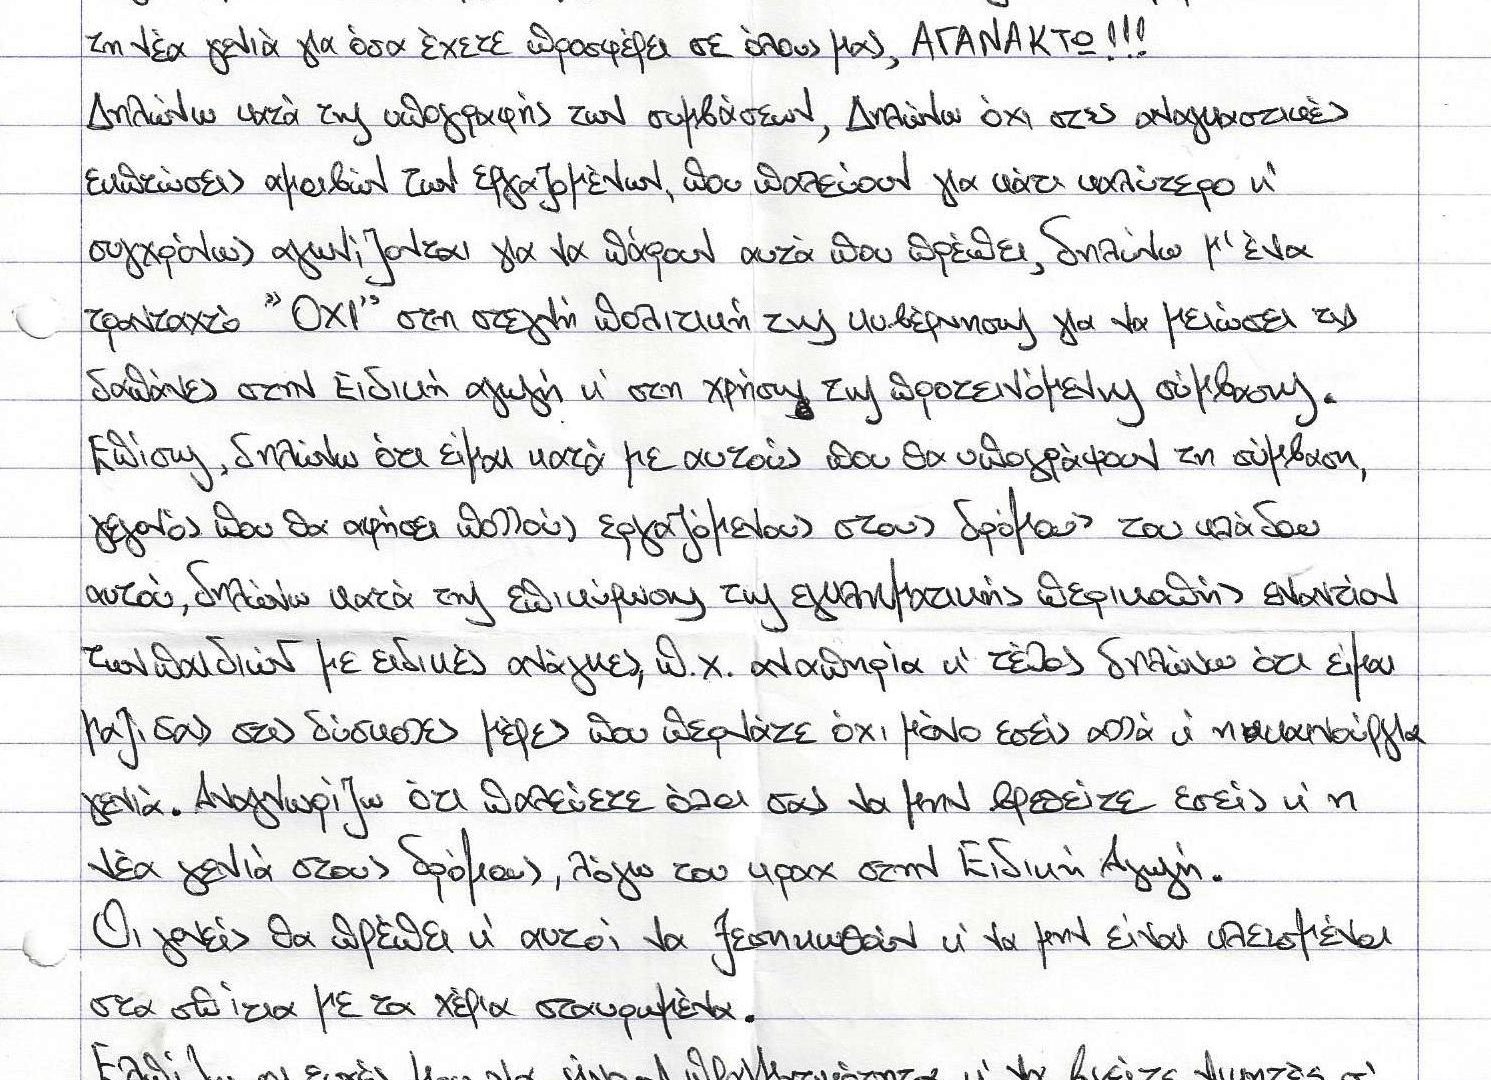 τη νέα γενιά για όσα έχετε προσφέρει σε όλους μας, ΑΓΑΝΑΚΤΩ!!!
Δηλώνω κατά της υπογραφής των συμβάσεων, Δηλώνω όχι στις αναγκαστικές
εκπτώσεις αμοιβών των εργαζομένων, που παλεύουν για κάτι καλύτερο κ'
συγχρόνως αγωνίζονται για να πάρουν αυτά που πρέπει, δηλώνω μ' ένα
τρανταχτό "ΟΧΙ" στη στεγνή πολιτική της κυβέρνησης για να μειώσει τις
δαπάνες στην Ειδική αγωγή κ' στη χρήσης της προτεινόμενης σύμβασης.
Επίσης, δηλώνω ότι είμαι κατά με αυτούς που θα υπογράψουν τη σύμβαση,
γεγονός που θα αφήσει πολλούς εργαζόμενους στους δρόμους του κλάδου
αυτού, δηλώνω κατά της επικύρωσης της εγκληματικής περικοπής εναντίον
των παιδιών με ειδικές ανάγκες, π.χ. αναπηρία κ' τέλος δηλώνω ότι είμαι
μαζί σας στις δύσκολες μέρες που περνάτε όχι μόνο εσείς αλλά κ' η καινούργια
γενιά. Αναγνωρίζω ότι παλεύετε όλοι σας να μην βρεθείτε εσείς κ' η
νέα γενιά στους δρόμους, λόγω του κραχ στην Ειδική Αγωγή.
Οι γονείς θα πρέπει κ' αυτοί να ξεσηκωθούν κ' να μην είναι κλεισμένοι
στα σπίτια με τα χέρια σταυρωμένα.